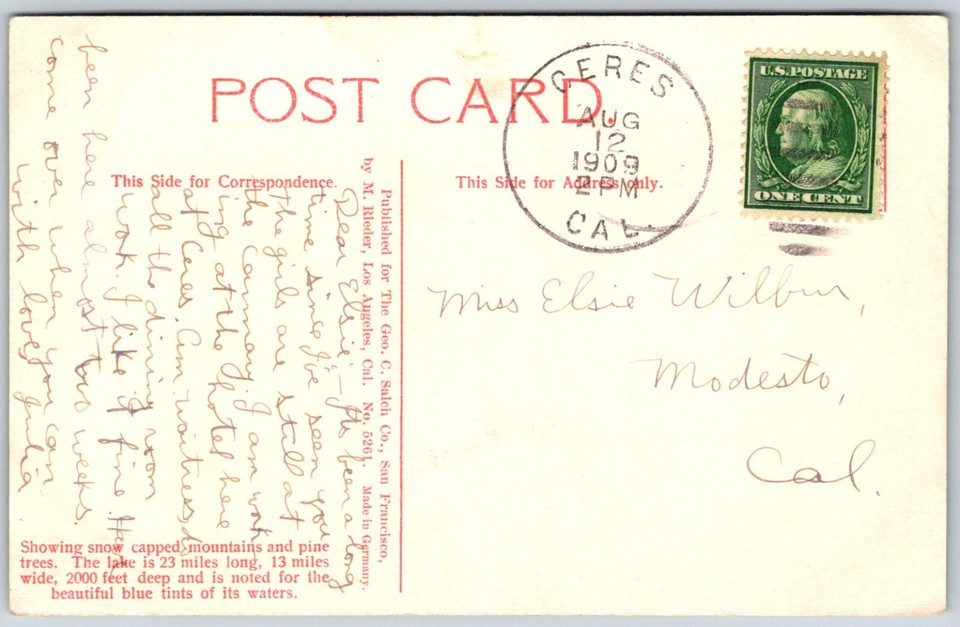 POST CARD.
CERES
AUG
12
1909
2 PM
CAL.
U.S. POSTAGE
ONE CENT
This Side for Correspondence.
This Side for Address only.
Published for The Geo. C. Salch Co., San Francisco,
by M. Rieder, Los Angeles, Cal. No. 5261. Made in Germany.
Dear Elsie:— Its been a long
time since I've seen you
The girls are still at
the Cannary. I am work
ing at the hotel here
at Ceres. Am waitress &
all the dining room
work. I like it fine. Have
been here almost two weeks.
come over when you can
With love, Julia
Miss Elsie Wilbur,
Modesto,
Cal.
Showing snow capped mountains and pine
trees. The lake is 23 miles long, 13 miles
wide, 2000 feet deep and is noted for the
beautiful blue tints of its waters.